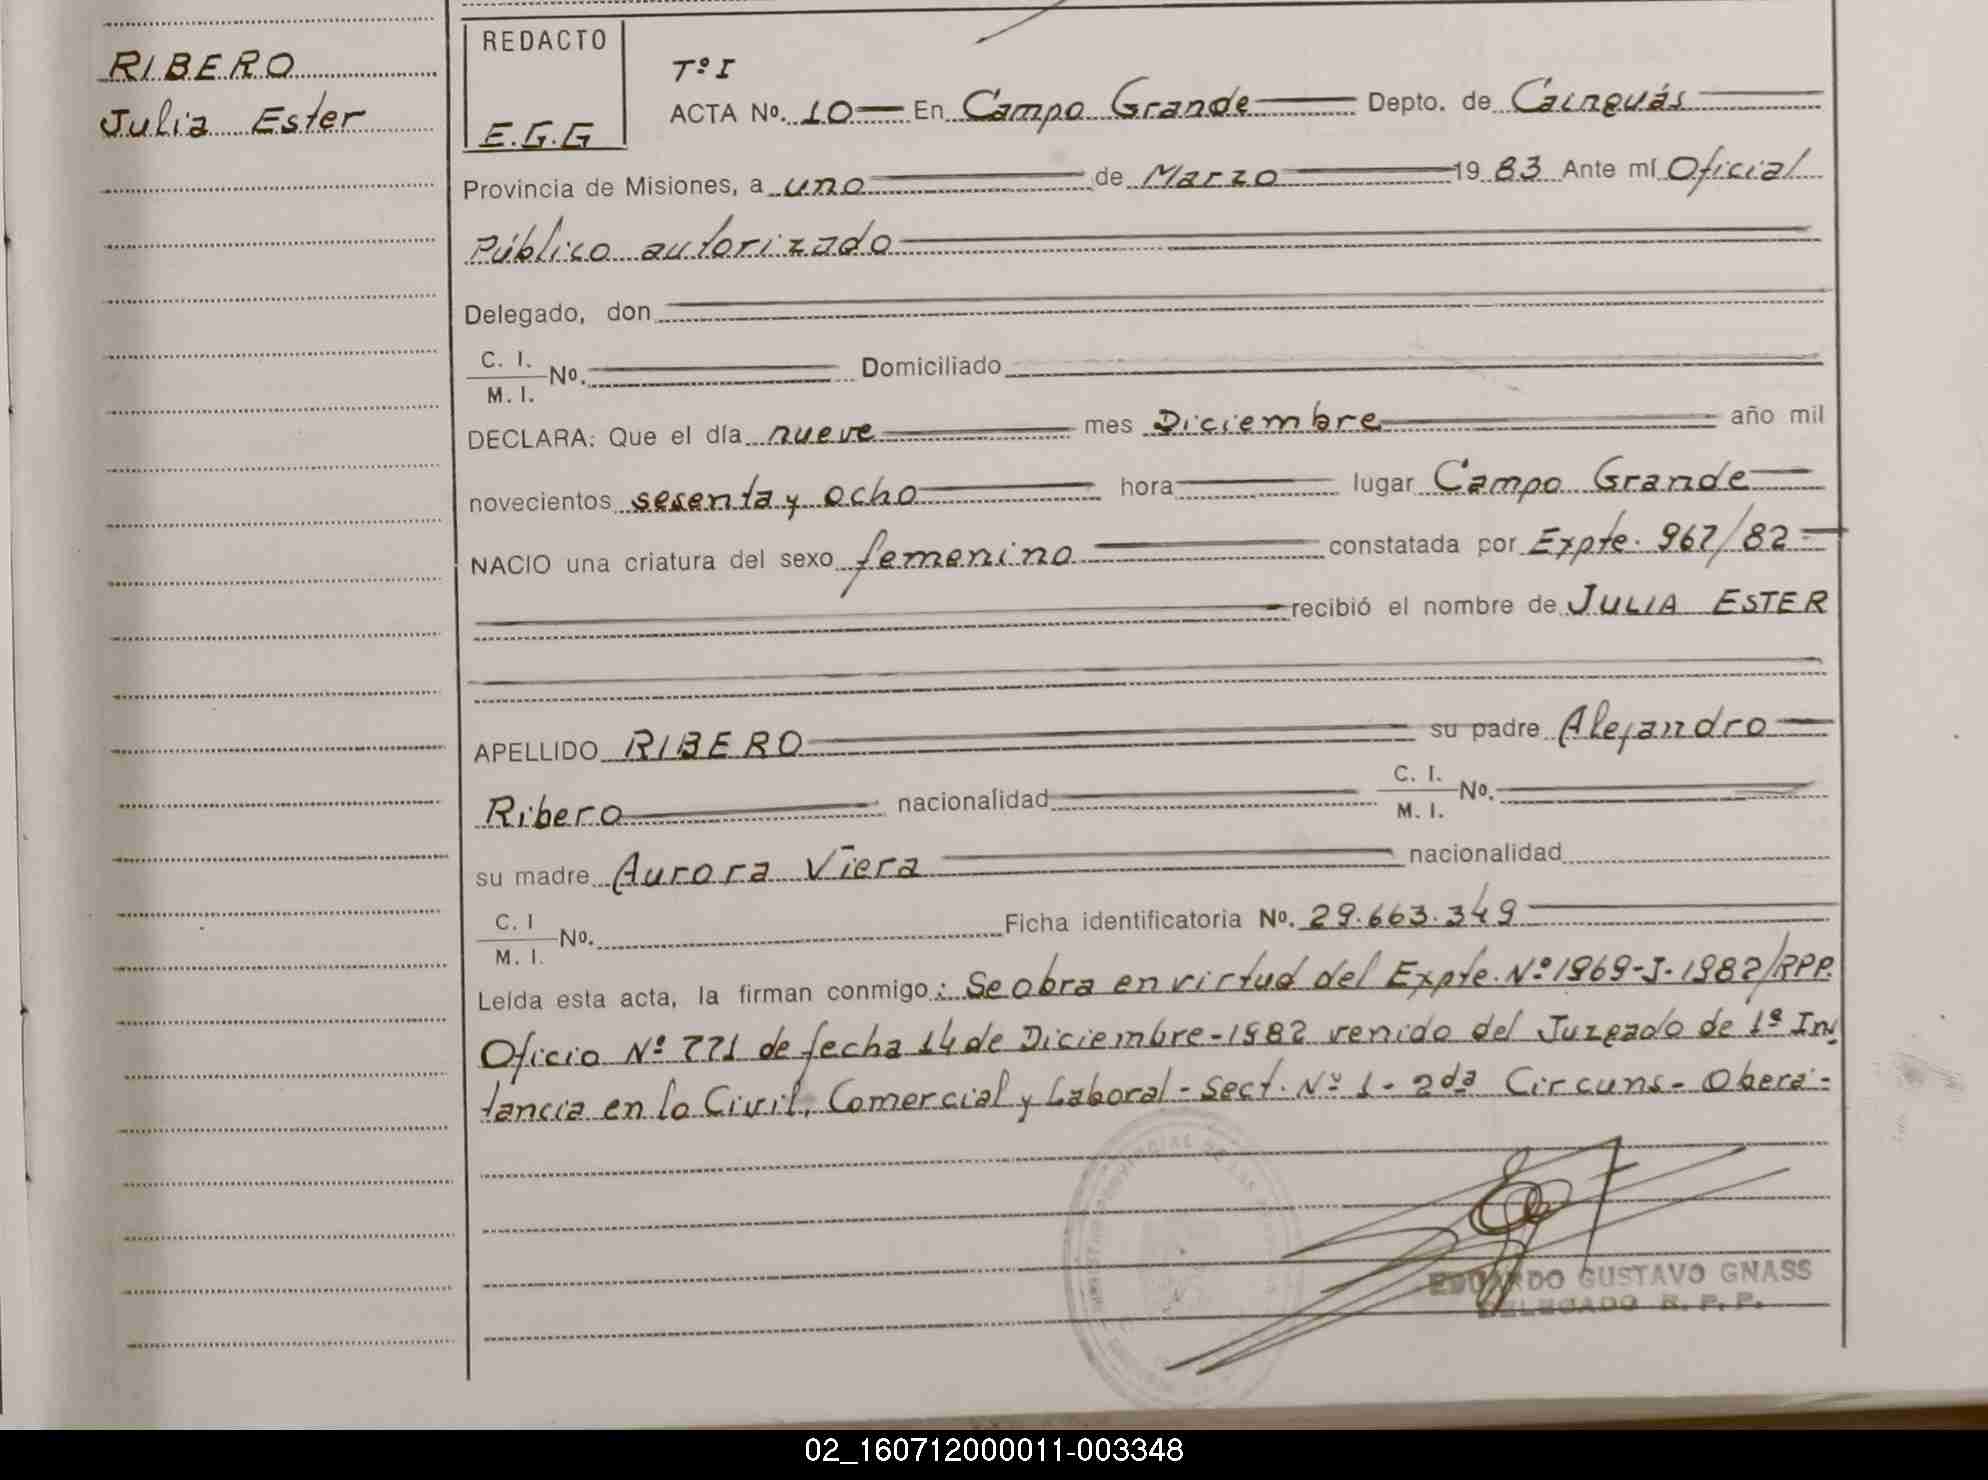 RIBERO
Julia Ester
REDACTO
E.G.G
Tº I
ACTA Nº. 10 En Campo Grande Depto. de Cainguás
Provincia de Misiones, a uno de Marzo 1983 Ante mí Oficial
Público autorizado
Delegado, don
C. I.
M. I. Nº. Domiciliado
DECLARA: Que el día nueve mes Diciembre año mil
novecientos sesenta y ocho hora lugar Campo Grande
NACIO una criatura del sexo femenino constatada por Expte. 967/82
recibió el nombre de JULIA ESTER
APELLIDO RIBERO su padre Alejandro
Ribero nacionalidad C. I. M. I. Nº.
su madre Aurora Viera nacionalidad
C. I M. I. Nº. Ficha identificatoria Nº. 29.663.349
Leída esta acta, la firman conmigo: Se obra en virtud del Expte. Nº 1969-J-1982/RPP.
Oficio Nº 771 de fecha 14 de Diciembre-1982 venido del Juzgado de 1ª Ins
tancia en lo Civil, Comercial y Laboral - Sect. Nº 1 - 2da Circuns - Obera -
EDUARDO GUSTAVO GNASS
DELEGADO R. P. P.
02_160712000011-003348